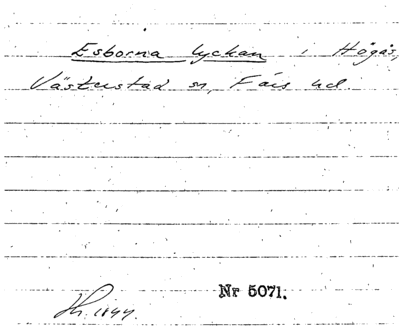 Esborna lyckan i Högås,
Västerstad sn, Färs hd
Nr 5071.
1844.